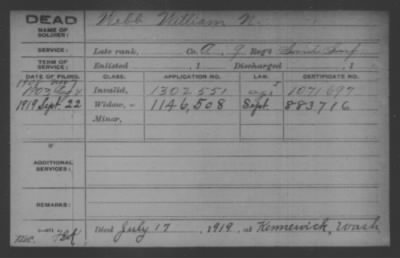 DEAD
NAME OF SOLDIER: Webb William N.
SERVICE: Late rank, Co. A, 9 Reg't Inf
TERM OF SERVICE: Enlisted , 1 Discharged , 1
DATE OF FILING. CLASS. APPLICATION NO. LAW. CERTIFICATE NO.
Invalid, 1302551 1071697
1919 Sept. 22 Widow, 1146,508 Sept. 883716
Minor,
ADDITIONAL SERVICES:
REMARKS:
Died July 17, 1919, at Kennewick, Wash